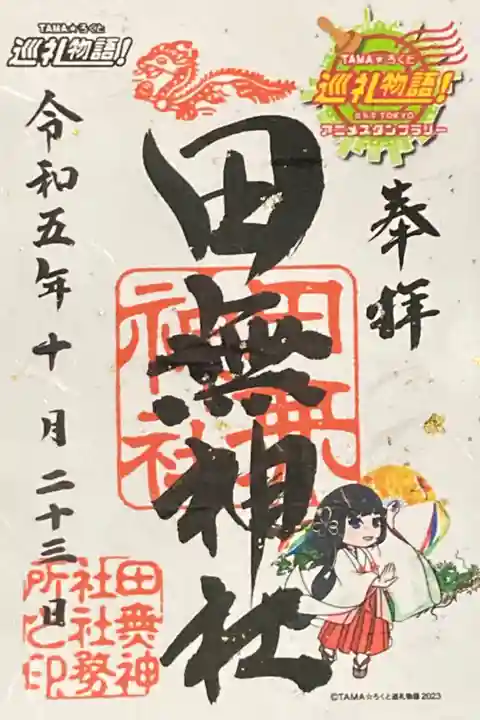 TAMA☆ろくと
巡礼物語!
TAMA☆ろくと
巡礼物語!
アニメスタンプラリー
奉拝
田無神社
田無神社
令和五年十月二十三日
田無神
社社務
所之印
©TAMA☆ろくと巡礼物語 2023